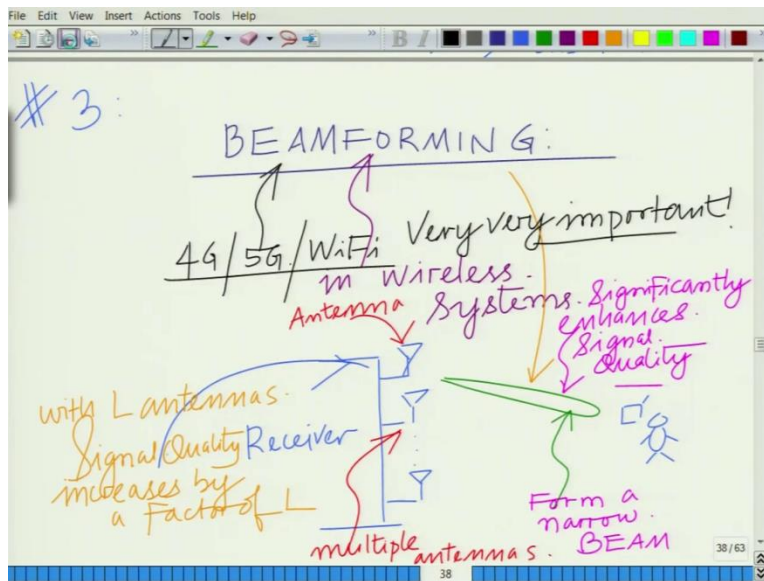 File Edit View Insert Actions Tools Help
B I
# 3:
BEAMFORMING:
4G/5G/WiFi Very very important!
in wireless
Systems.
Significantly
enhances
Signal
Quality
Antenna
with L antennas.
Signal Quality
increases by
a Factor of L
Receiver
multiple antennas.
Form a
narrow.
BEAM
38/63
38